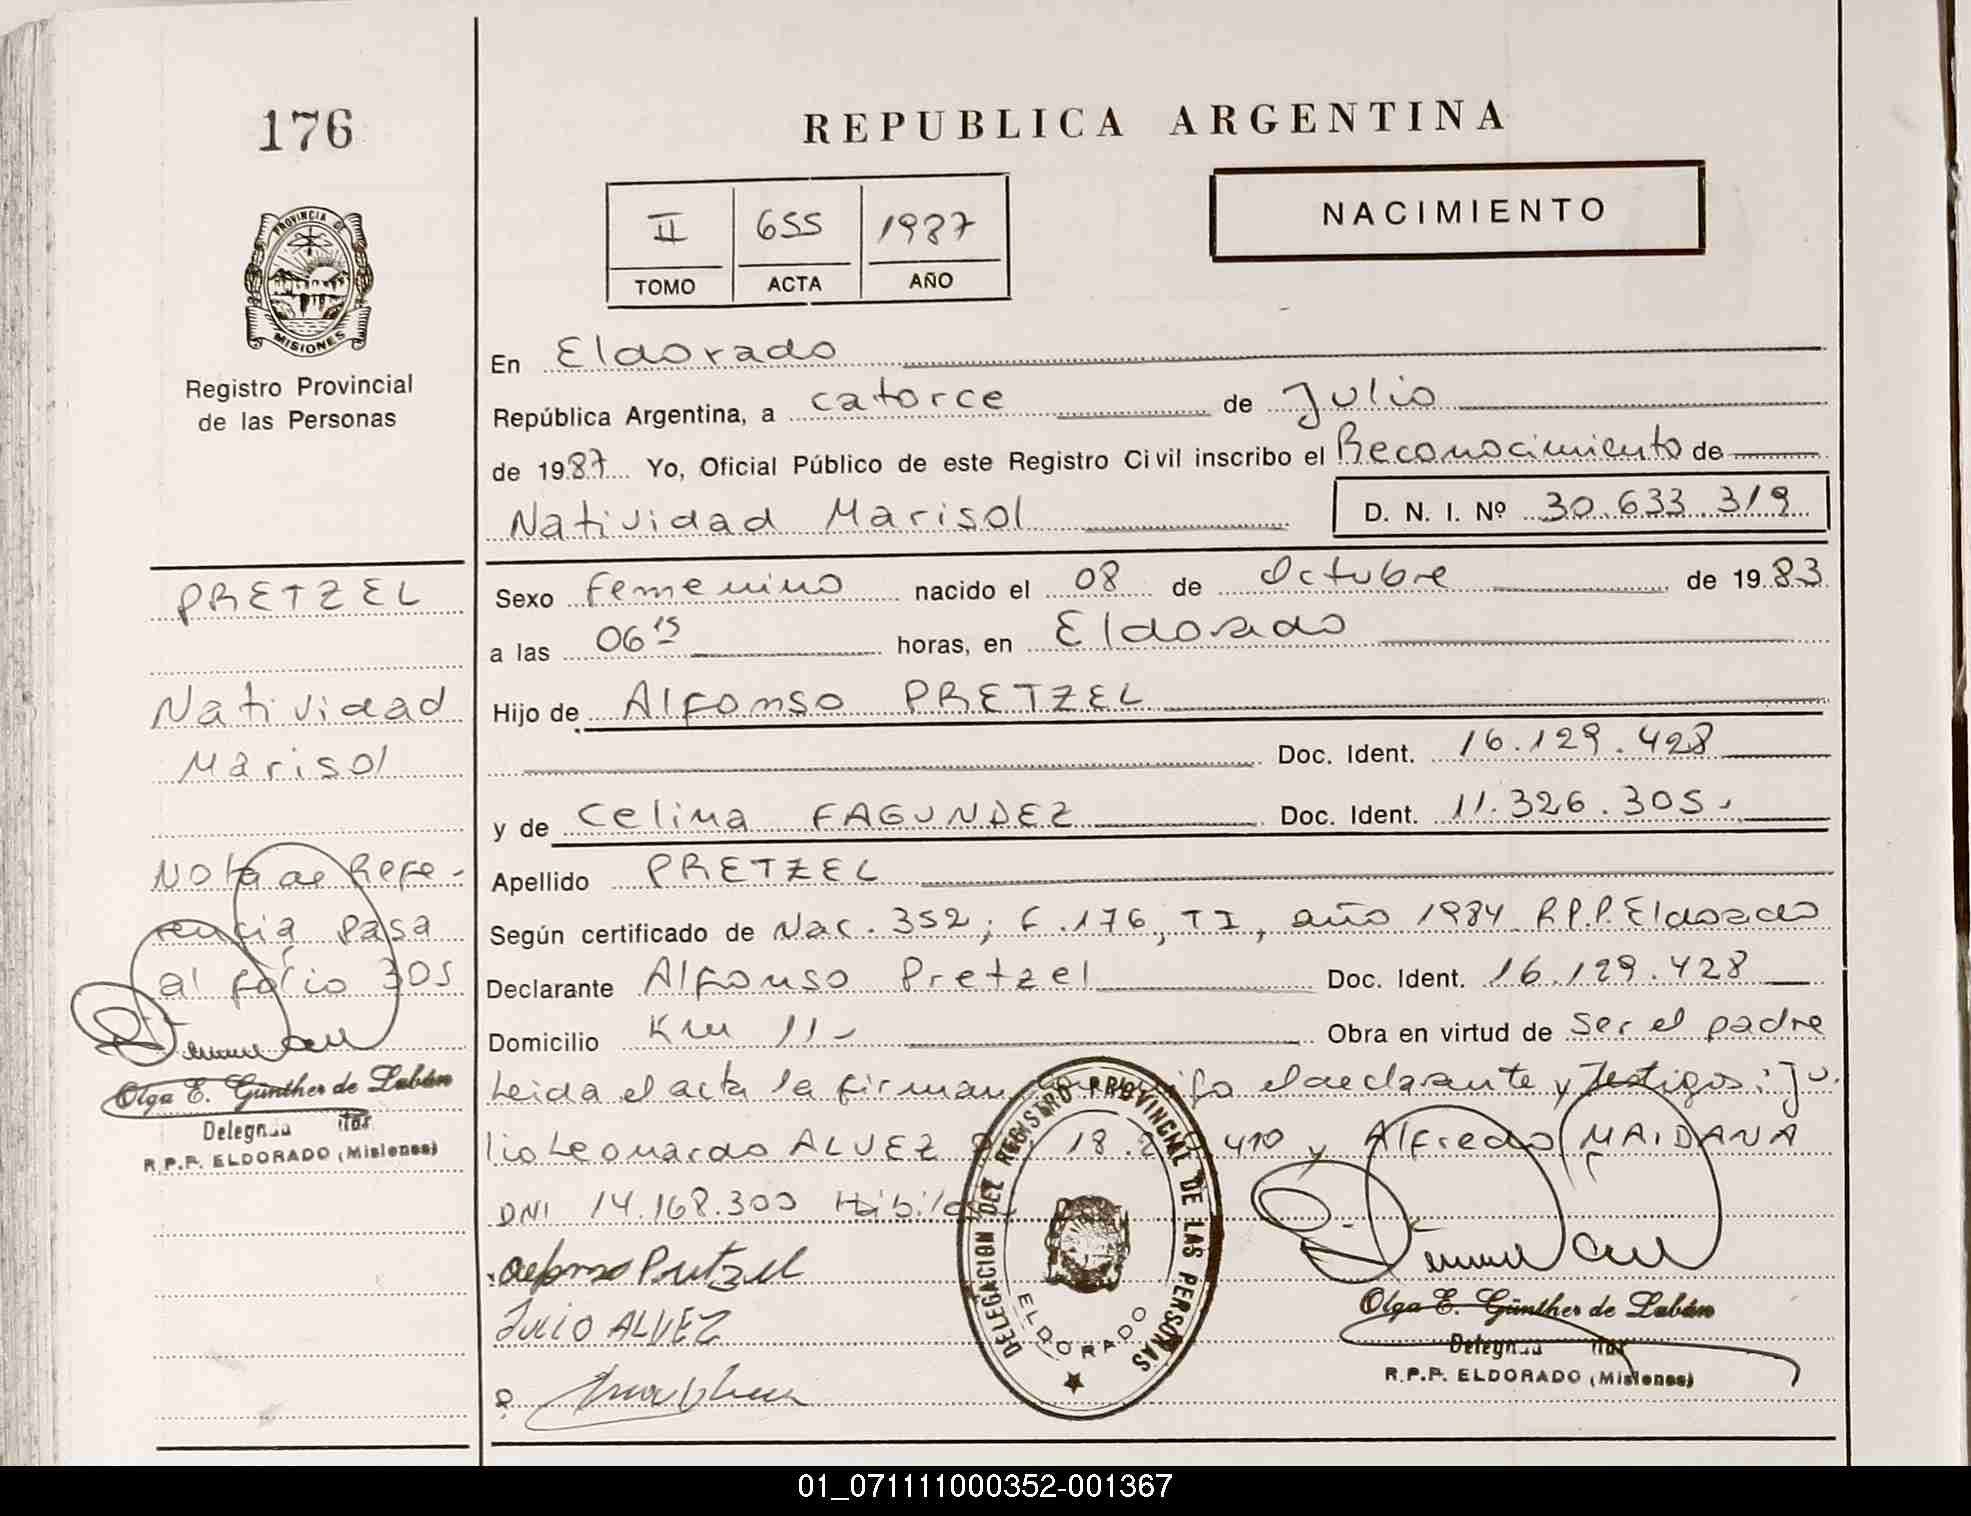 176
REPUBLICA ARGENTINA
II 655 1987
TOMO ACTA AÑO
NACIMIENTO
PROVINCIA DE
MISIONES
Registro Provincial
de las Personas
En Eldorado
República Argentina, a catorce de Julio
de 1987 Yo, Oficial Público de este Registro Civil inscribo el Reconocimiento de
Natividad Marisol D. N. I. Nº 30.633.319
PRETZEL
Natividad
Marisol
Nota de Refe-
rencia pasa
al folio 305
Olga E. Günther de Labán
R.P.P. ELDORADO (Misiones)
Sexo Femenino nacido el 08 de Octubre de 1983
a las 06 15 horas, en Eldorado
Hijo de Alfonso PRETZEL
Doc. Ident. 16.129.428
y de Celina FAGUNDEZ Doc. Ident. 11.326.305.
Apellido PRETZEL
Según certificado de Nac. 352; F. 176, TI, año 1984 R.P.P. Eldorado
Declarante Alfonso Pretzel Doc. Ident. 16.129.428
Domicilio Km 11- Obra en virtud de Ser el padre
Leida el acta la firman el declarante y Testigos: Ju.
lio Leonardo ALVEZ 18. 410 y Alfredo MAIDANA
DNI 14.168.300
Alfonso Pretzel
Julio ALVEZ
DELEGACION DEL REGISTRO PROVINCIAL DE LAS PERSONAS
ELDORADO
Olga E. Günther de Labán
R.P.P. ELDORADO (Misiones)
01_071111000352-001367